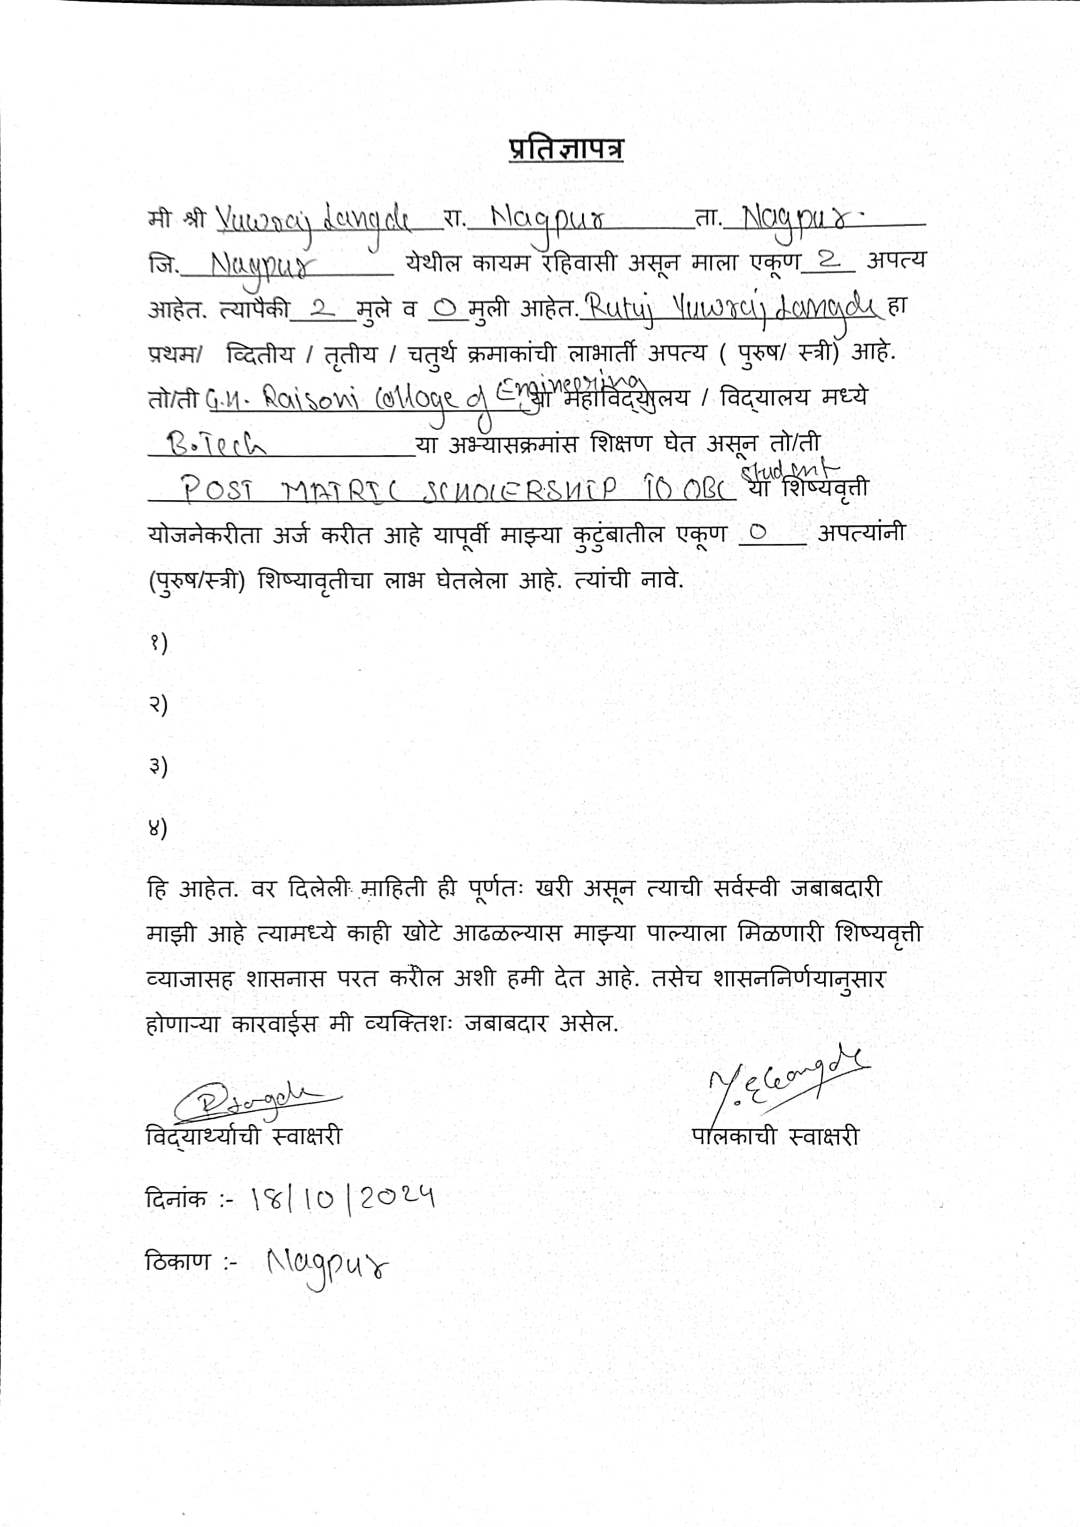 प्रतिज्ञापत्र
मी श्री Yuwraj Langde रा. Nagpur ता. Nagpur.
जि. Nagpur येथील कायम रहिवासी असून माला एकूण 2 अपत्य
आहेत. त्यापैकी 2 मुले व 0 मुली आहेत. Rutuj Yuwraj Langde हा
प्रथम/ व्दितीय / तृतीय / चतुर्थ क्रमाकांची लाभार्ती अपत्य ( पुरुष/ स्त्री) आहे.
तो/ती G.H. Raisoni College of Engineering या महाविद्यालय / विद्यालय मध्ये
B.Tech या अभ्यासक्रमांस शिक्षण घेत असून तो/ती
POST MATRIC SCHOLERSHIP TO OBC student या शिष्यवृत्ती
योजनेकरीता अर्ज करीत आहे यापूर्वी माझ्या कुटुंबातील एकूण 0 अपत्यांनी
(पुरुष/स्त्री) शिष्यावृतीचा लाभ घेतलेला आहे. त्यांची नावे.
१)
२)
३)
४)
हि आहेत. वर दिलेली माहिती ही पूर्णतः खरी असून त्याची सर्वस्वी जबाबदारी
माझी आहे त्यामध्ये काही खोटे आढळल्यास माझ्या पाल्याला मिळणारी शिष्यवृत्ती
व्याजासह शासनास परत करील अशी हमी देत आहे. तसेच शासननिर्णयानुसार
होणाऱ्या कारवाईस मी व्यक्तिशः जबाबदार असेल.
विद्यार्थ्याची स्वाक्षरी पालकाची स्वाक्षरी
दिनांक :- 18/10/2024
ठिकाण :- Nagpur